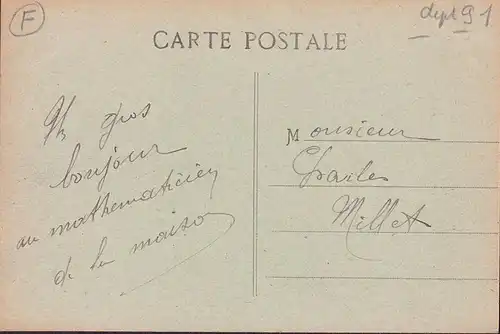 F
dept 91
CARTE POSTALE
Un gros
bonjour
au mathématicien
de la maison
Monsieur
Charles
Millet